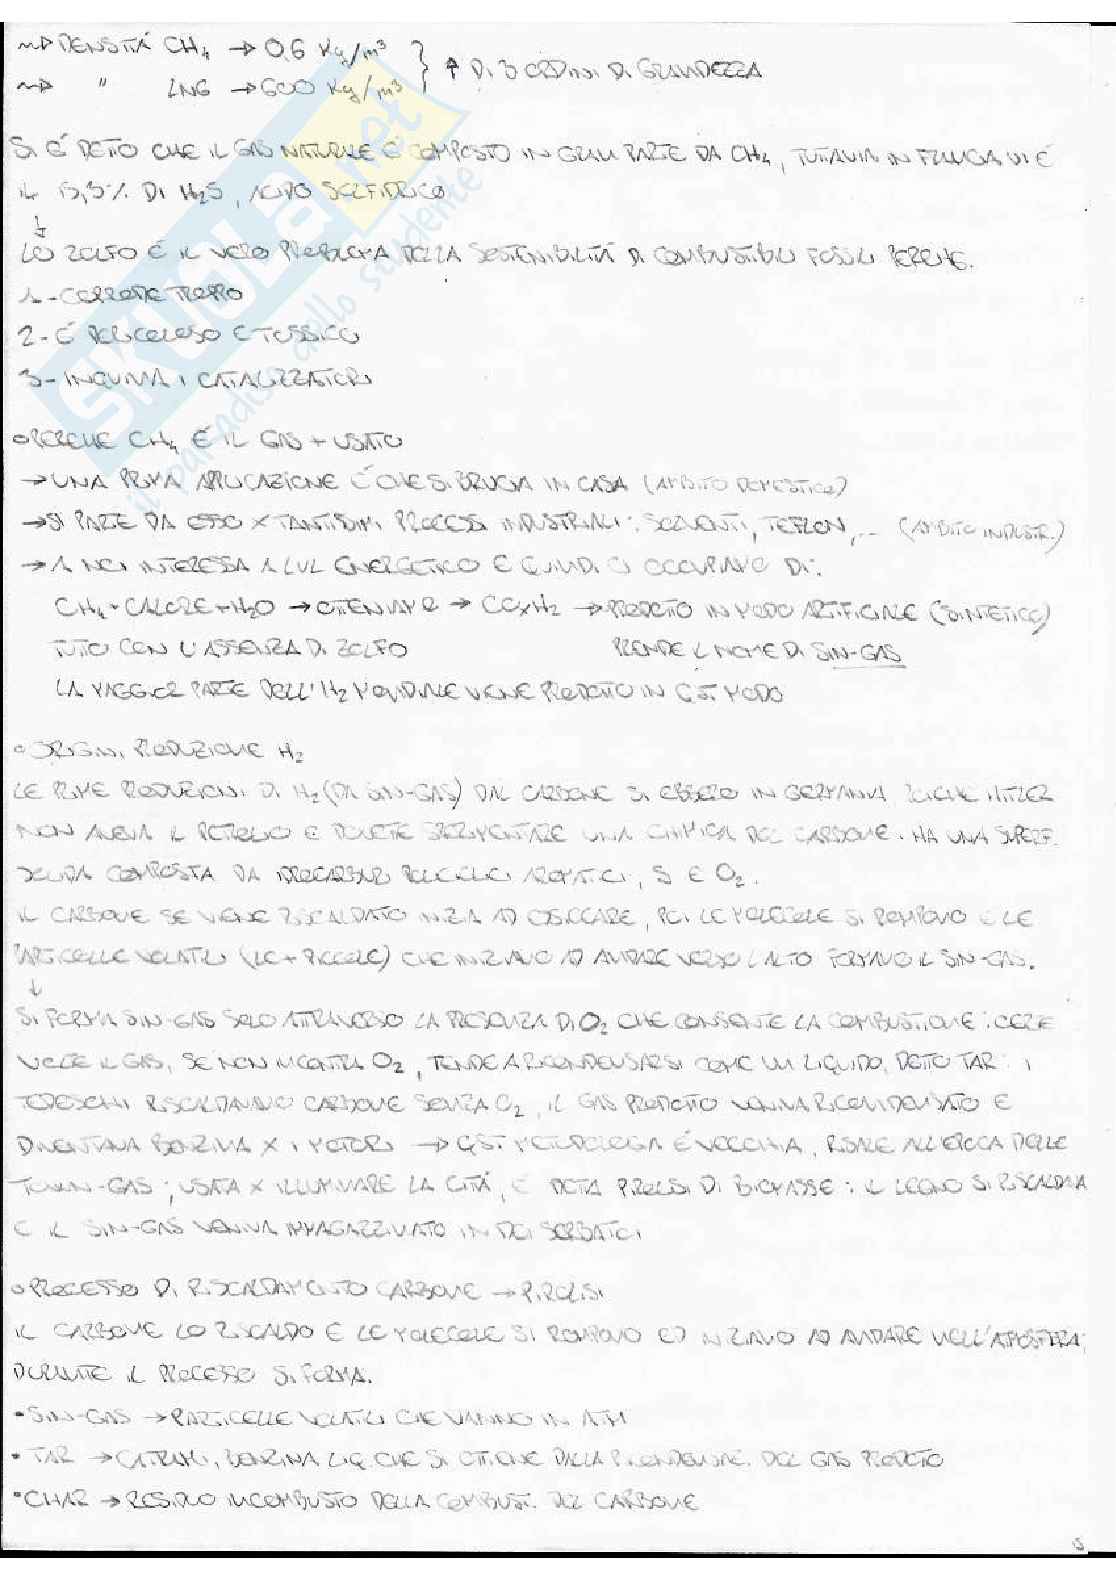 ⇝ DENSITÀ CH₄ → 0,6 Kg/m³
⇝ " LNG → 600 Kg/m³ } ↑ DI 3 ORDINI DI GRANDEZZA
SI È DETTO CHE IL GAS NATURALE È COMPOSTO IN GRAN PARTE DA CH₄, TUTTAVIA IN VI È
IL 15,5% DI H₂S, ACIDO SOLFIDRICO
↓
LO ZOLFO È IL VERO PROBLEMA DELLA SOSTENIBILITÀ DI COMBUSTIBILI FOSSILI PERCHÈ:
1- CORRODE TROPPO
2- È PERICOLOSO E TOSSICO
3- INQUINA I CATALIZZATORI
• PERCHÈ CH₄ È IL GAS + USATO
→ UNA PRIMA APPLICAZIONE È CHE SI BRUCIA IN CASA (AMBITO DOMESTICO)
→ SI PARTE DA ESSO X TANTISSIMI PROCESSI INDUSTRIALI: SOLVENTI, TEFLON, ... (AMBITO INDUSTR.)
→ A NOI INTERESSA A LIV. ENERGETICO E QUINDI CI OCCUPIAMO DI:
CH₄ + CALORE + H₂O → OTTENIAMO → CO, H₂ → PRODOTTO IN MODO ARTIFICIALE (SINTETICO)
TUTTO CON L'ASSENZA DI ZOLFO PRENDE IL NOME DI SIN-GAS
LA MAGGIOR PARTE DELL'H₂ MONDIALE VIENE PRODOTTO IN QST MODO
• ORIGINI PRODUZIONE H₂
LE PRIME PRODUZIONI DI H₂ (DA SIN-GAS) DAL CARBONE SI EBBERO IN GERMANIA POICHÈ HITLER
NON AVEVA IL PETROLIO E DOVETTE SPERIMENTARE UNA CHIMICA DEL CARBONE. HA UNA SUPERF.
SOLIDA COMPOSTA DA IDROCARBURI POLICICLICI AROMATICI, S E O₂.
IL CARBONE SE VIENE RISCALDATO INIZIA AD ESSICCARE, POI LE MOLECOLE SI ROMPONO E LE
PARTICELLE VOLATILI (LE + PICCOLE) CHE INIZIANO AD ANDARE VERSO L'ALTO FORMANO IL SIN-GAS.
↓
SI FORMA SIN-GAS SOLO ATTRAVERSO LA PRESENZA DI O₂ CHE CONSENTE LA COMBUSTIONE:
IL GAS, SE NON INCONTRA O₂, TENDE A RICONDENSARSI COME UN LIQUIDO, DETTO TAR: I
TEDESCHI RISCALDAVANO CARBONE SENZA O₂, IL GAS PRODOTTO VENIVA RICONDENSATO E
DIVENTAVA BENZINA X I MOTORI → QST METODOLOGIA È VECCHIA, RISALE ALL'EPOCA DELLE
TOWN-GAS; USATA X ILLUMINARE LA CITTÀ, È DETTA DI BIOMASSE: IL LEGNO SI RISCALDAVA
E IL SIN-GAS VENIVA IMMAGAZZINATO IN DEI SERBATOI
• PROCESSO DI RISCALDAMENTO CARBONE → PIROLISI
IL CARBONE LO RISCALDO E LE MOLECOLE SI ROMPONO ED INIZIANO AD ANDARE NELL'ATMOSFERA;
DURANTE IL PROCESSO SI FORMA:
• SIN-GAS → PARTICELLE VOLATILI CHE VANNO IN ATM
• TAR → CATRAMI, BENZINA LIQ. CHE SI OTTIENE DALLA RICONDENSAZ. DEL GAS PRODOTTO
• CHAR → RESIDUO INCOMBUSTO DELLA COMBUST. DEL CARBONE
SKUOLA.net
il paradiso dello studente